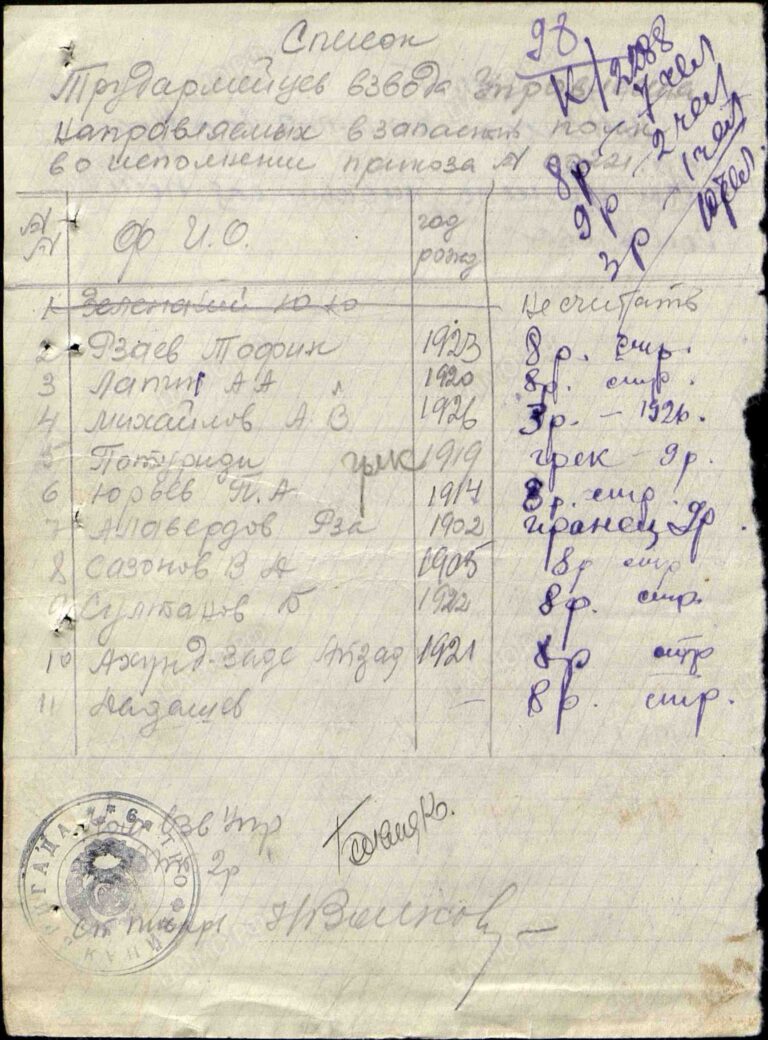 Список
98
К/2088
Трудармейцев взвода Управления
направляемых в запасный полк
во исполнении приказа №
8р - 7 чел
9р - 2 чел
3р - 1 чел
10 чел.
№ № Ф И.О. год рожд
1 Зеленский Ю Ю не считать
2 Рзаев Тофик 1923 8р. стр.
3 Лапин А А 1920 8р. стр.
4 Михайлов А В 1926 3р. - 1926.
5 Потуриди грек 1919 грек - 9р.
6 Юрьев П.А 1914 8р. стр.
7 Алавердов Рза 1902 иранец 9р.
8 Сазонов В Д 1905 8р стр
9 Султанов Б 1922 8р. стр.
10 Ахунд-Заде Агзад 1921 8р стр
11 Дадашев - 8р. стр.
взв Упр
2р
Ст писарь Волков